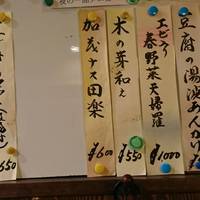 豆腐の湯波あんかけ
エビ入り
春野菜天婦羅
¥1000
木の芽和え
¥550
加茂ナス田楽
¥600
¥650